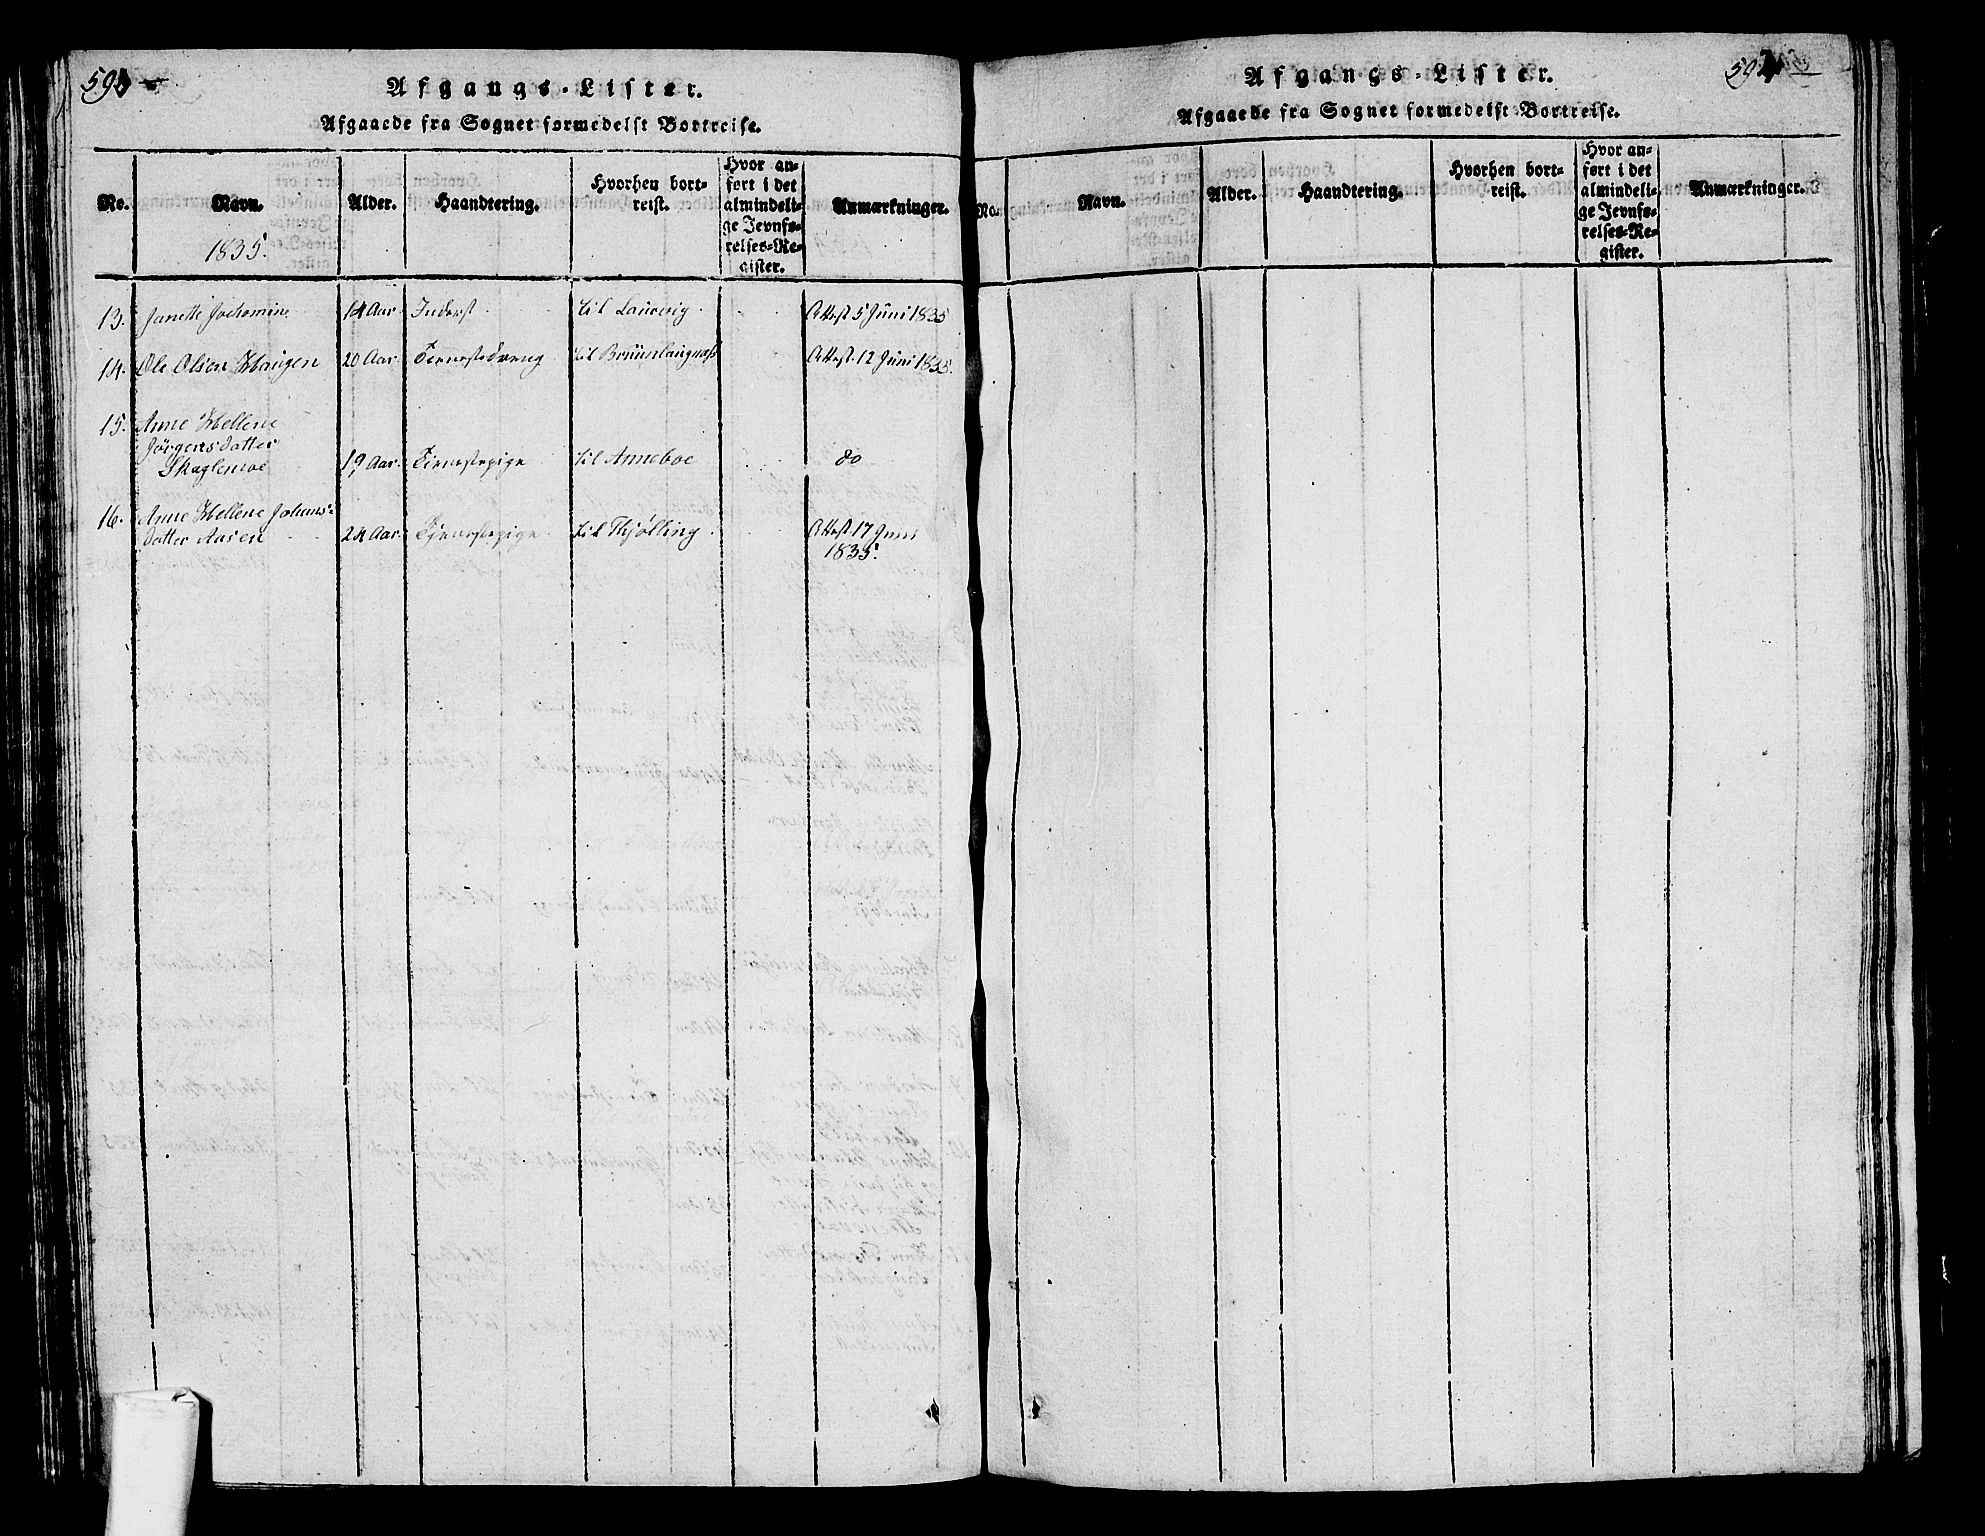 Afgangs-Lister.
Afgaaede fra Sognet formedelst Bortreise.
No. Navn. Alder. Haandtering. Hvorhen bort-reist. Hvor an-ført i det almindeli-ge Jevnfø-relses-Re-gister. Anmærkninger.
1835.
13. Janette Jochomine 14 Aar Inderst til Laurvig Attest 5 Juni 1835
14. Ole Olsen Haugen 20 Aar Tienestedreng til Brunlaugnæs Attest 12 Juni 1835.
15. Anne Hellene
Jørgensdatter
Skaglemoe 19 Aar Tienestepige til Anneboe do
16. Anne Hellene Johans-
datter Aasen 24 Aar Tjenestepige til Thjølling Attest 17 Juni
1835.
Afgangs-Lister.
Afgaaede fra Sognet formedelst Bortreise.
No. Navn. Alder. Haandtering. Hvorhen bort-reist. Hvor an-ført i det almindeli-ge Jevnfø-relses-Re-gister. Anmærkninger.